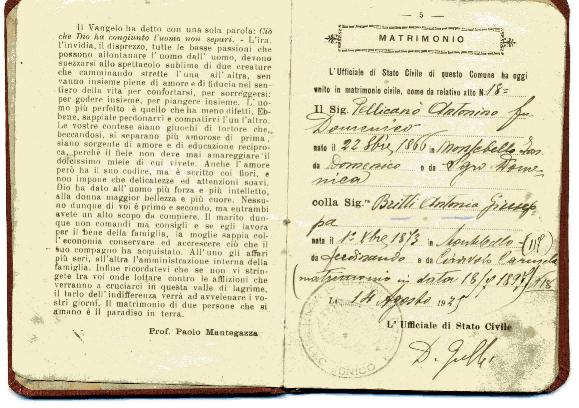 Il Vangelo ha detto con una sola parola: Ciò
che Dio ha congiunto l'uomo non separi. - L'ira,
l'invidia, il disprezzo, tutte le basse passioni che
possono allontanare l'uomo dall'uomo, devono
spezzarsi allo spettacolo sublime di due creature
che camminando strette l'una all'altra, sen
vanno insieme piene di amore e di fiducia nel sen-
tiero della vita per confortarsi, per sorreggersi;
per godere insieme, per piangere insieme. L'uo-
mo più perfetto è quello che ha meno difetti. Eb-
bene, sappiate perdonarvi e compatirvi l'un l'altro.
Le vostre contese siano giuochi di tortore che
beccandosi, si separano più amorose di prima,
siano sorgente di amore e di educazione recipro-
ca, perchè il fiele non deve mai amareggiare il
dolcissimo miele di cui vivete. Anche l'amore
però ha il suo codice, ma è scritto coi fiori, e
non impone che delicatezze ed attenzioni soavi.
Dio ha dato all'uomo più forza e più intelletto,
alla donna maggior bellezza e più cuore. Nessu-
no dunque di voi è primo e secondo, ma entrambi
avete un alto scopo da compiere. Il marito dun-
que non comandi ma consigli e se egli lavora
per il bene della famiglia, la moglie sappia col-
l'economia conservare ed accrescere ciò che il
suo compagno ha acquistato. All'uno gli affari
più seri, all'altra l'amministrazione interna della
famiglia. Infine ricordatevi che se non vi strin-
gete tra voi onde lottare contro le afflizioni che
verranno a cruciarci in questa valle di lagrime,
il tarlo dell'indifferenza verrà ad avvelenare i vo-
stri giorni. Il matrimonio di due persone che si
amano è il paradiso in terra.
Prof. Paolo Mantegazza
— 5 —
MATRIMONIO
L'Ufficiale di Stato Civile di questo Comune ha oggi
unito in matrimonio civile, come da relativo atto N. 18=
Il Sig. Pellicanò Antonino fu
Domenico
nato il 22 8bre 1866 in Montebello
da Domenico e da
nica
colla Sig.ra Britti Antonia Giusep-
pa
nata il 1° Xbre 1873 in Montebello
da Ferdinando e da Carmela
(matrimonio in data
Lì 14 Agosto 192
L'Ufficiale di Stato Civile